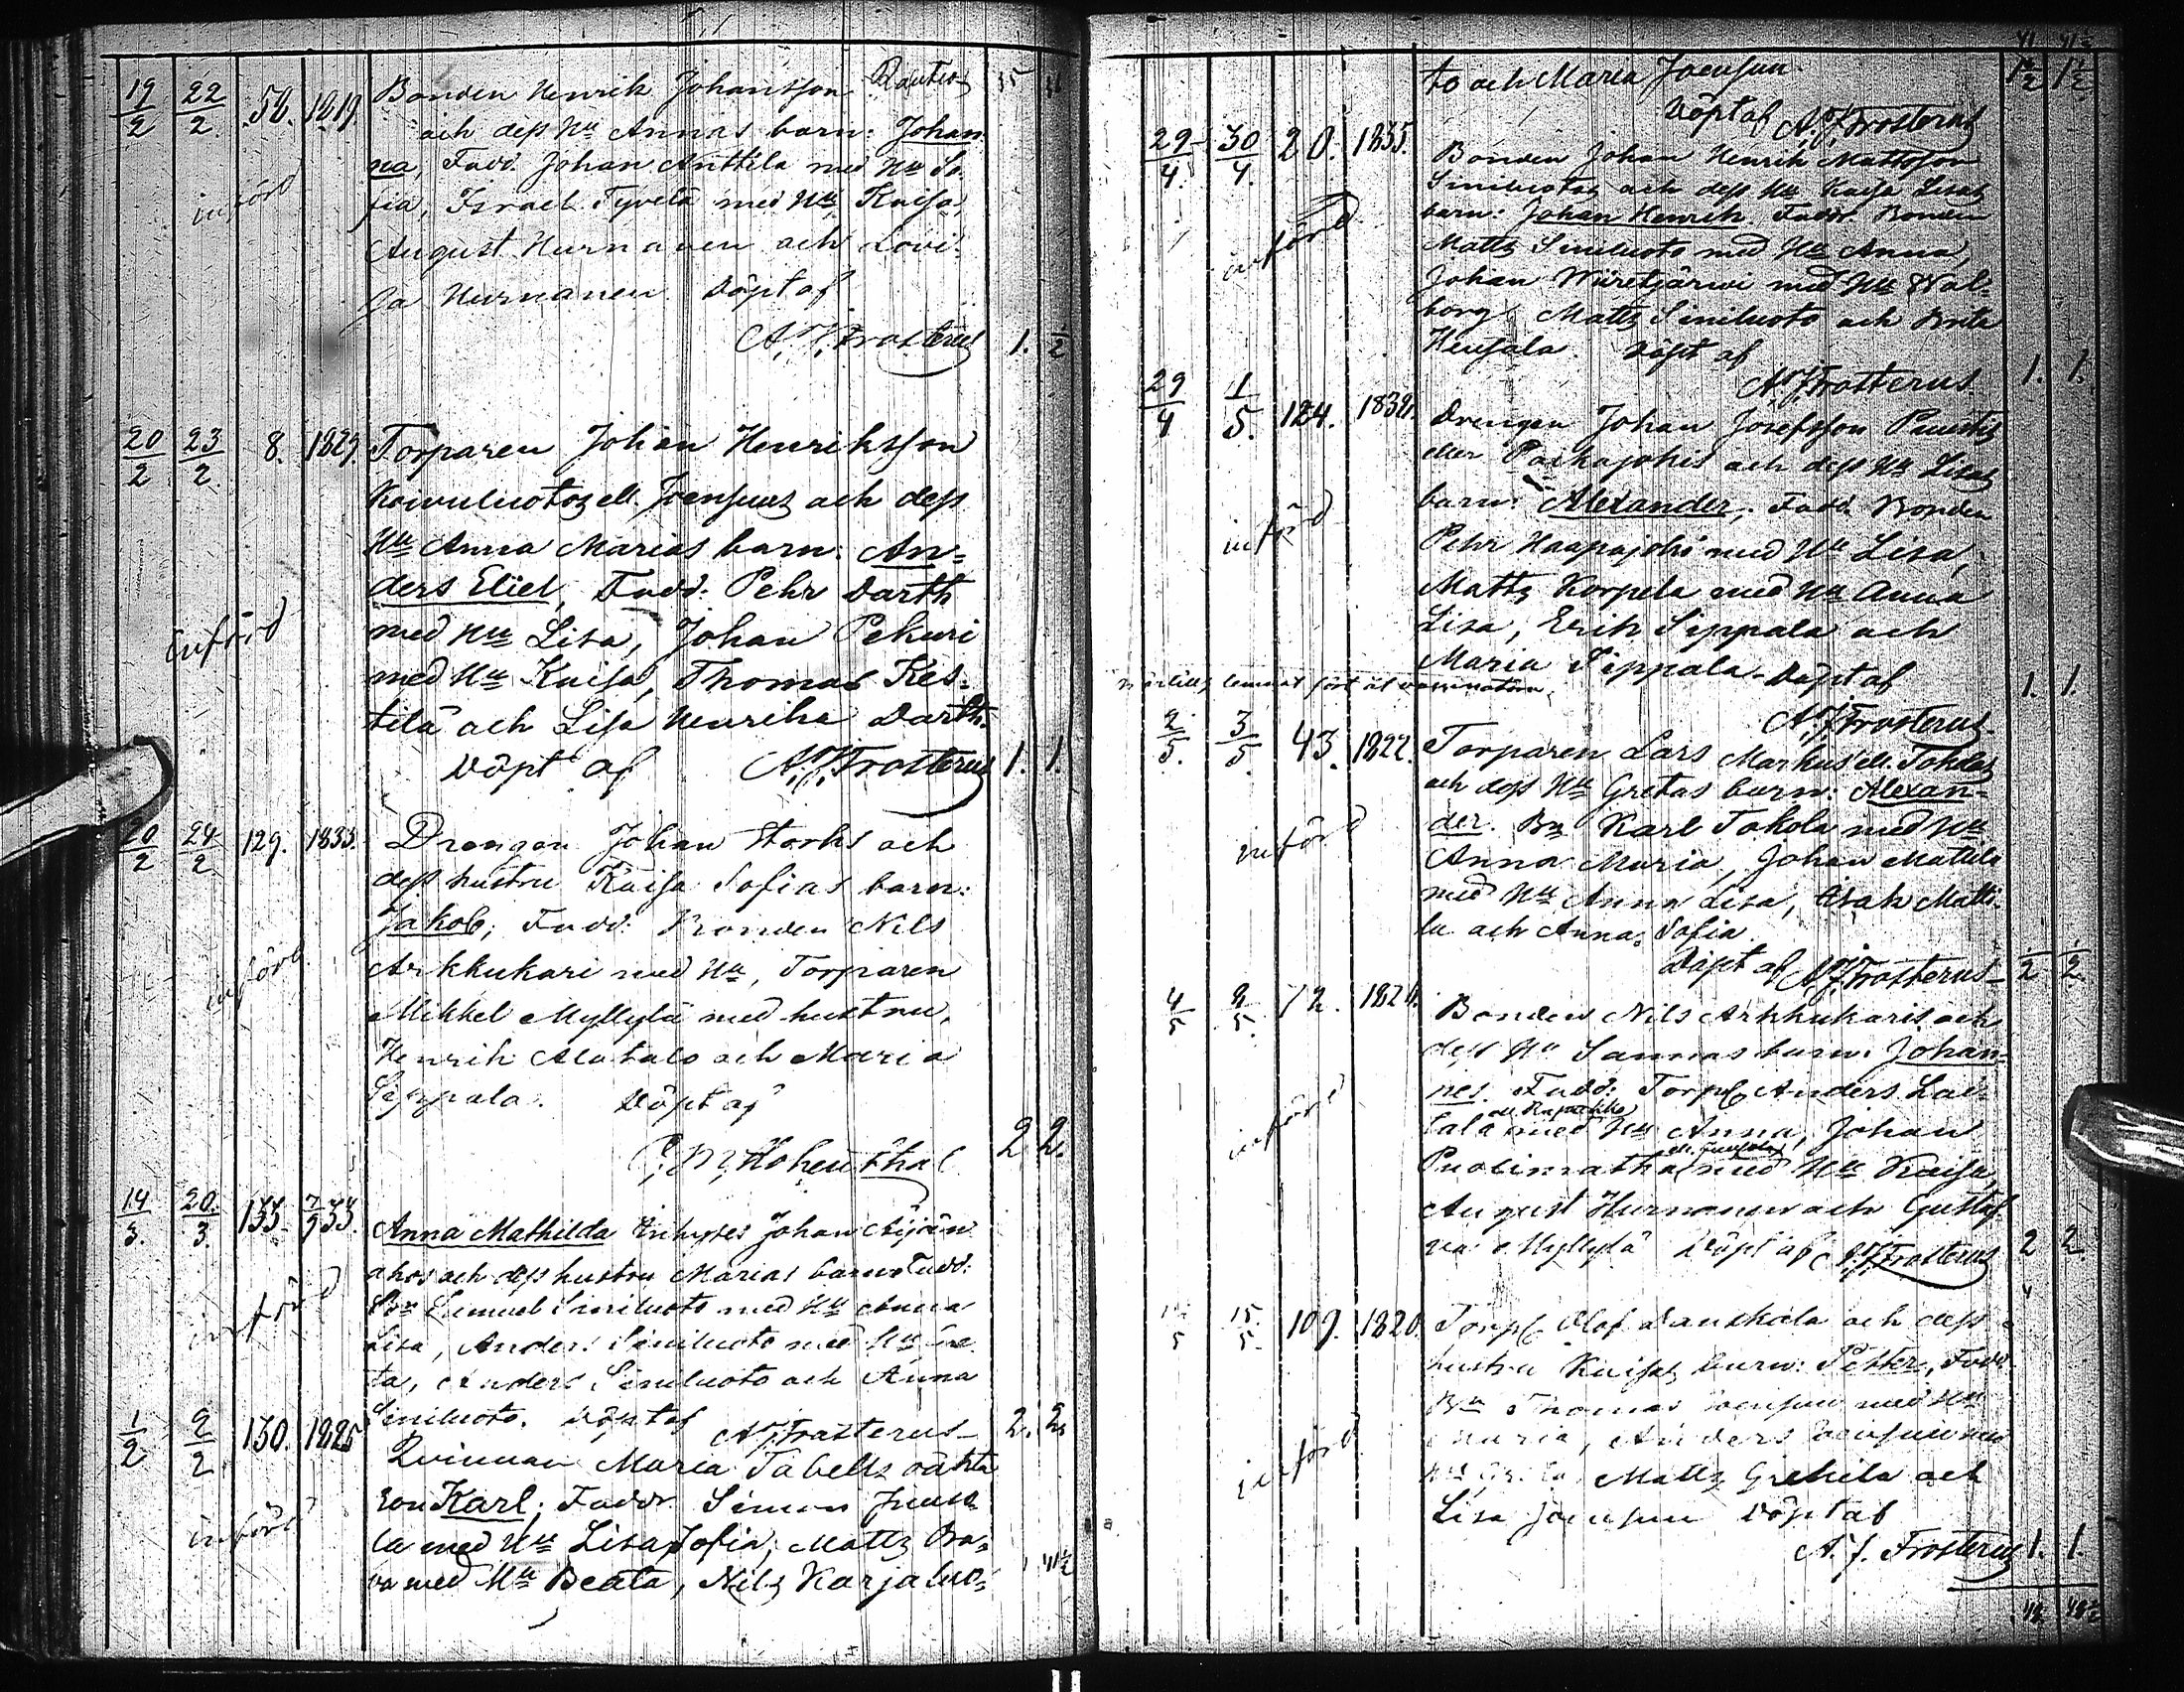 19/2 22/2 52. 1819. Bonden Henrik Johansson Rautios 35
och dess Hu Annas barn: Johan
na, Fadd. Johan Anttila med Hu So
införd
fia, Israel Tyvelä med Hu Kaisa,
August Hurnanen och Lovi
sa Hurnanen. Döpt af
A. J. Frosterus 1. 1/2
20/2 23/2 8. 1829. Torparen Johan Henriksson
Koivuluotos ell. Joensuus och dess
Hu Anna Marias barn: An-
ders Eliel, Fadd: Pehr Darth
införd
med Hu Lisa, Johan Pekuri
med Hu Kaisa, Thomas Kes-
tilä och Lisa Henrika Darth.
Döpt af A. J. Frosterus 1. 1.
20/2 24/2 129. 1833. Drengen Johan Storhs och
dess hustru Kaisa Sofias barn:
Jakob; Fadd: Bonden Nils
införd
Arkkukari med Hu, Torparen
Mikkel Myllylä med hustru,
Henrik Alatalo och Maria
Sippala. Döpt af
Hohenthal 2 2.
14/3. 20./3. 133. 7/9 33. Anna Mathilda Inhyses Johan Äijän
ahos och dess hustru Marias barn. Fadd:
införd
Bn Samuel Siniluoto med Hu Anna
Lisa, Anders Siniluoto med Hu
ta, Anders Siniluoto och Anna
Siniluoto. Döpt af A. J. Frosterus 2. 2.
1/2 2/2 130. 1825 Qvinnan Maria Tabells oäkta
son Karl; Faddr. Simon Juuso
införd
la med Hu Lisa Sofia, Matts Bra-
va med Hu Beata, Nils Karjaluo- 41 1/2
41 41 1/2
to och Maria Joensuu. 1 1/2 1 1/2
Döpt af A. J. Frosterus
29/4. 30/4. 20. 1835. Bonden Johan Henrik Mattsson
Siniluotos och dess Hu Kaisa Lisas
barn: Johan Henrik. Fadd. Bonden
införd
Matts Siniluoto med Hu Anna,
Johan Wiiretjärwi med Hu Wal-
borg, Matts Siniluoto och Brita
Heusala. Döpt af
A. J. Frosterus. 1. 1.
29/4 1/5. 184. 1832. Drengen Johan Josefsson Puustis
eller Paikajokis och dess Hu Lisas
barn: Alexander, Fadd. Bonden
införd
Pehr Haapajoki med Hu Lisa,
Matts Korpela med Hu Anna
Lisa, Erik Sippala och
Maria Sippala. Döpt af 1. 1.
A. J. Frosterus
2/5. 3/5. 43. 1822. Torparen Lars Markus ell. Tokolas
och dess Hu Gretas barn: Alexan-
der. Bn Karl Tokola med Hu
införd
Anna Maria, Johan Mattila
med Hu Anna Lisa, Isak Matti-
la och Anna Sofia.
Döpt af A. J. Frosterus 1/2 1/2
4/5 8/5. 72. Bonden Nils Arkkukaris och
dess Hu Sannas barn: Johan-
nes. Fadd: Torp. Anders Lai-
tala med Hu Anna, Johan
införd
Puolimatka med Hu Kaisa,
August Hurnanen och Gustaf
va Myllylä Döpt af A. J. Frosterus 2 2
15/5. 109. 1820. Torp. Olof Danskala och dess
hustru Kaisas barn: Petter, Fadd.
Bn Thomas Joensuu med Hu
Maria, Anders Joensuu med
införd
Matts Grekila och
Lisa Joensuu Döpt af
A. J. Frosterus 1. 1.